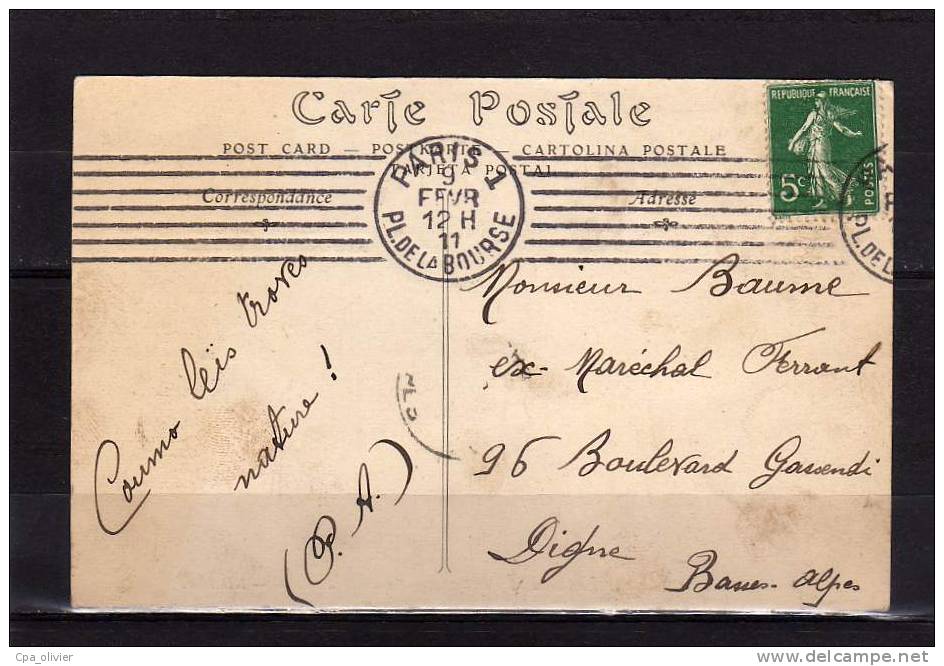 Carte Postale
POST CARD — POSTKARTE — CARTOLINA POSTALE
TARJETA POSTAL
Correspondance
Adresse
PARIS 1
9
FEVR
12 H
11
PL. DE LA BOURSE
REPUBLIQUE FRANÇAISE
5c
POSTES
PL. DE L
Coumo leïs troves
nature !
(P. A.)
Monsieur Baume
ex-Maréchal Ferrant
96 Boulevard Gassendi
Digne
Basses-Alpes
Cpa_olivier
www.delcampe.net